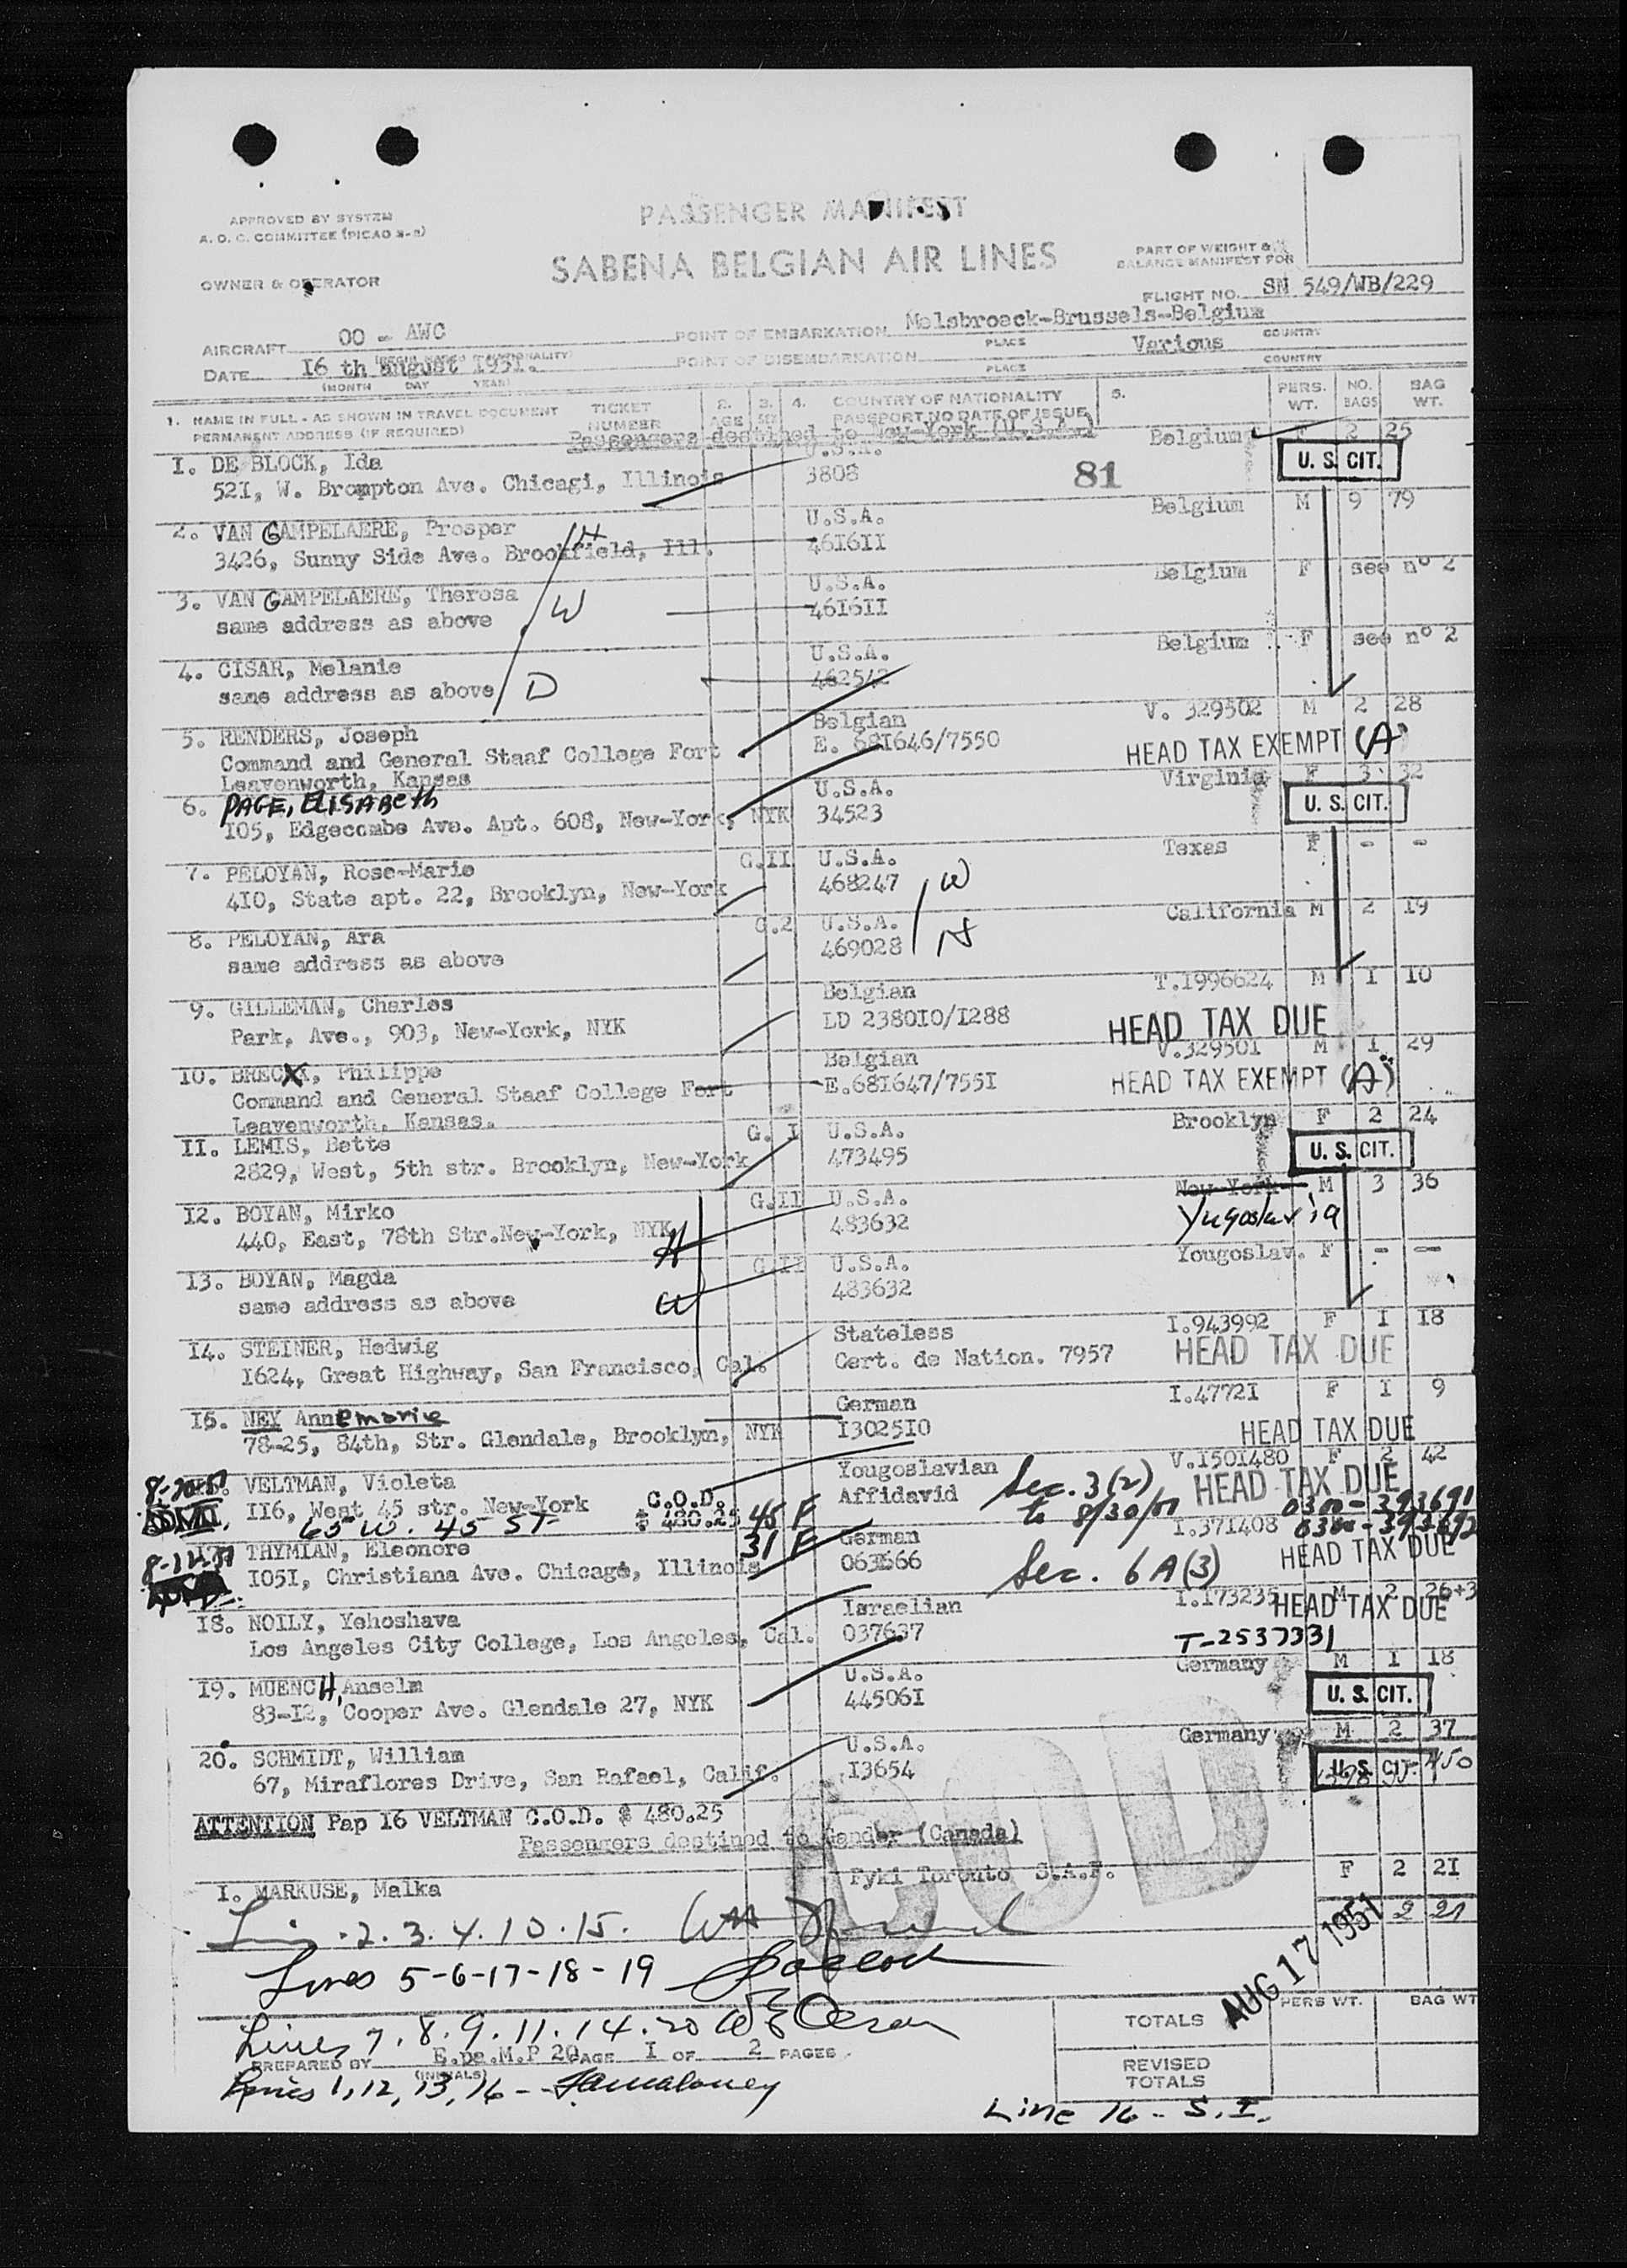 APPROVED BY SYSTEM
A. O. C. COMMITTEE (PICAO
PASSENGER MANIFEST
SABENA BELGIAN AIR LINES
PART OF WEIGHT &
BALANCE MANIFEST FOR
OWNER & OPERATOR
FLIGHT NO. SN 549/WB/229
AIRCRAFT OO - AWC
POINT OF EMBARKATION Melsbroeck-Brussels-Belgium
PLACE COUNTRY
DATE 16 th august 1951.
(MONTH DAY YEAR)
POINT OF DISEMBARKATION Various
PLACE COUNTRY
1. NAME IN FULL - AS SHOWN IN TRAVEL DOCUMENT
PERMANENT ADDRESS (IF REQUIRED)
TICKET NUMBER 2. AGE 3. SEX 4. COUNTRY OF NATIONALITY
PASSPORT NO DATE OF ISSUE 5. PERS. WT. NO. BAGS BAG WT.
Passengers destined to New-York (U.S.A.)
I. DE BLOCK, Ida U.S.A. Belgium F 2 25
52I, W. Brompton Ave. Chicagi, Illinois 3808 81 U. S. CIT.
2. VAN GAMPELAERE, Prosper U.S.A. Belgium M 9 79
3426, Sunny Side Ave. Brookfield, Ill. H 46I6II
3. VAN GAMPELAERE, Theresa U.S.A. Belgium F see n° 2
same address as above W 46I6II
4. CISAR, Melanie U.S.A. Belgium F see n° 2
same address as above D 462542
5. RENDERS, Joseph Belgian V. 329502 M 2 28
Command and General Staaf College Fort E. 68I646/7550 HEAD TAX EXEMPT (A)
Leavenworth, Kansas
6. PAGE, ELISABETH U.S.A. Virginia F 3 32
I05, Edgecombe Ave. Apt. 608, New-York, NYK 34523 U. S. CIT.
7. PELOYAN, Rose-Marie G.II U.S.A. Texas F - -
4I0, State apt. 22, Brooklyn, New-York 468247 W
8. PELOYAN, Ara G.2 U.S.A. California M 2 I9
same address as above 469028 H
9. GILLEMAN, Charles Belgian T.I996624 M I I0
Park, Ave., 903, New-York, NYK LD 2380I0/I288 HEAD TAX DUE
I0. BRECX, Philippe Belgian V.32950I M I 29
Command and General Staaf College Fort E.68I647/755I HEAD TAX EXEMPT (A)
Leavenworth, Kansas.
II. LEMIS, Bette G. I U.S.A. Brooklyn F 2 24
2829, West, 5th str. Brooklyn, New-York 473495 U. S. CIT.
I2. BOYAN, Mirko G.II U.S.A. New-York M 3 36
440, East, 78th Str.New-York, NYK H 483632 Yugoslavia
I3. BOYAN, Magda G.II U.S.A. Yougoslav. F - -
same address as above W 483632
I4. STEINER, Hedwig Stateless I.943992 F I I8
I624, Great Highway, San Francisco, Cal. Cert. de Nation. 7957 HEAD TAX DUE
I5. NEY Annemarie German I.4772I F I 9
78-25, 84th, Str. Glendale, Brooklyn, NYK I3025I0 HEAD TAX DUE
VELTMAN, Violeta Yougoslavian V.I50I480 F 2 42
II6, West 45 str. New-York C.O.D. $ 480.25 45 F Affidavid Sec. 3(2) to 8/30/51 HEAD TAX DUE
65 W. 45 ST 0300-393691
0300-393692
THYMIAN, Eleonore 31 F German I.37I408
I05I, Christiana Ave. Chicago, Illinois Sec. 6A(3) HEAD TAX DUE
I8. NOILY, Yehoshava Israelian I.I73235 M 2 26+3
Los Angeles City College, Los Angeles, Cal. 037637 HEAD TAX DUE
T-2537331
I9. MUENCH, Anselm U.S.A. Germany M I I8
83-I2, Cooper Ave. Glendale 27, NYK 44506I U. S. CIT.
20. SCHMIDT, William U.S.A. Germany M 2 37
67, Miraflores Drive, San Rafael, Calif. I3654 U. S. CIT. 450
ATTENTION Pap I6 VELTMAN C.O.D. $ 480.25
COD
Passengers destined to Gander (Canada)
I. MARKUSE, Malka Fyki Toronto S.A.F. F 2 2I
2 21
2. 3. 4. 10. 15.
AUG 17 1951
Lines 5-6-17-18-19
Lines 7. 8. 9. 11. 14. 20
TOTALS PERS WT. BAG WT
PREPARED BY E.pa.M.P 20 PAGE I OF 2 PAGES
(INITIALS)
REVISED TOTALS
Lines 1, 12, 13, 16 - Maloney
Line 16 - S.I.